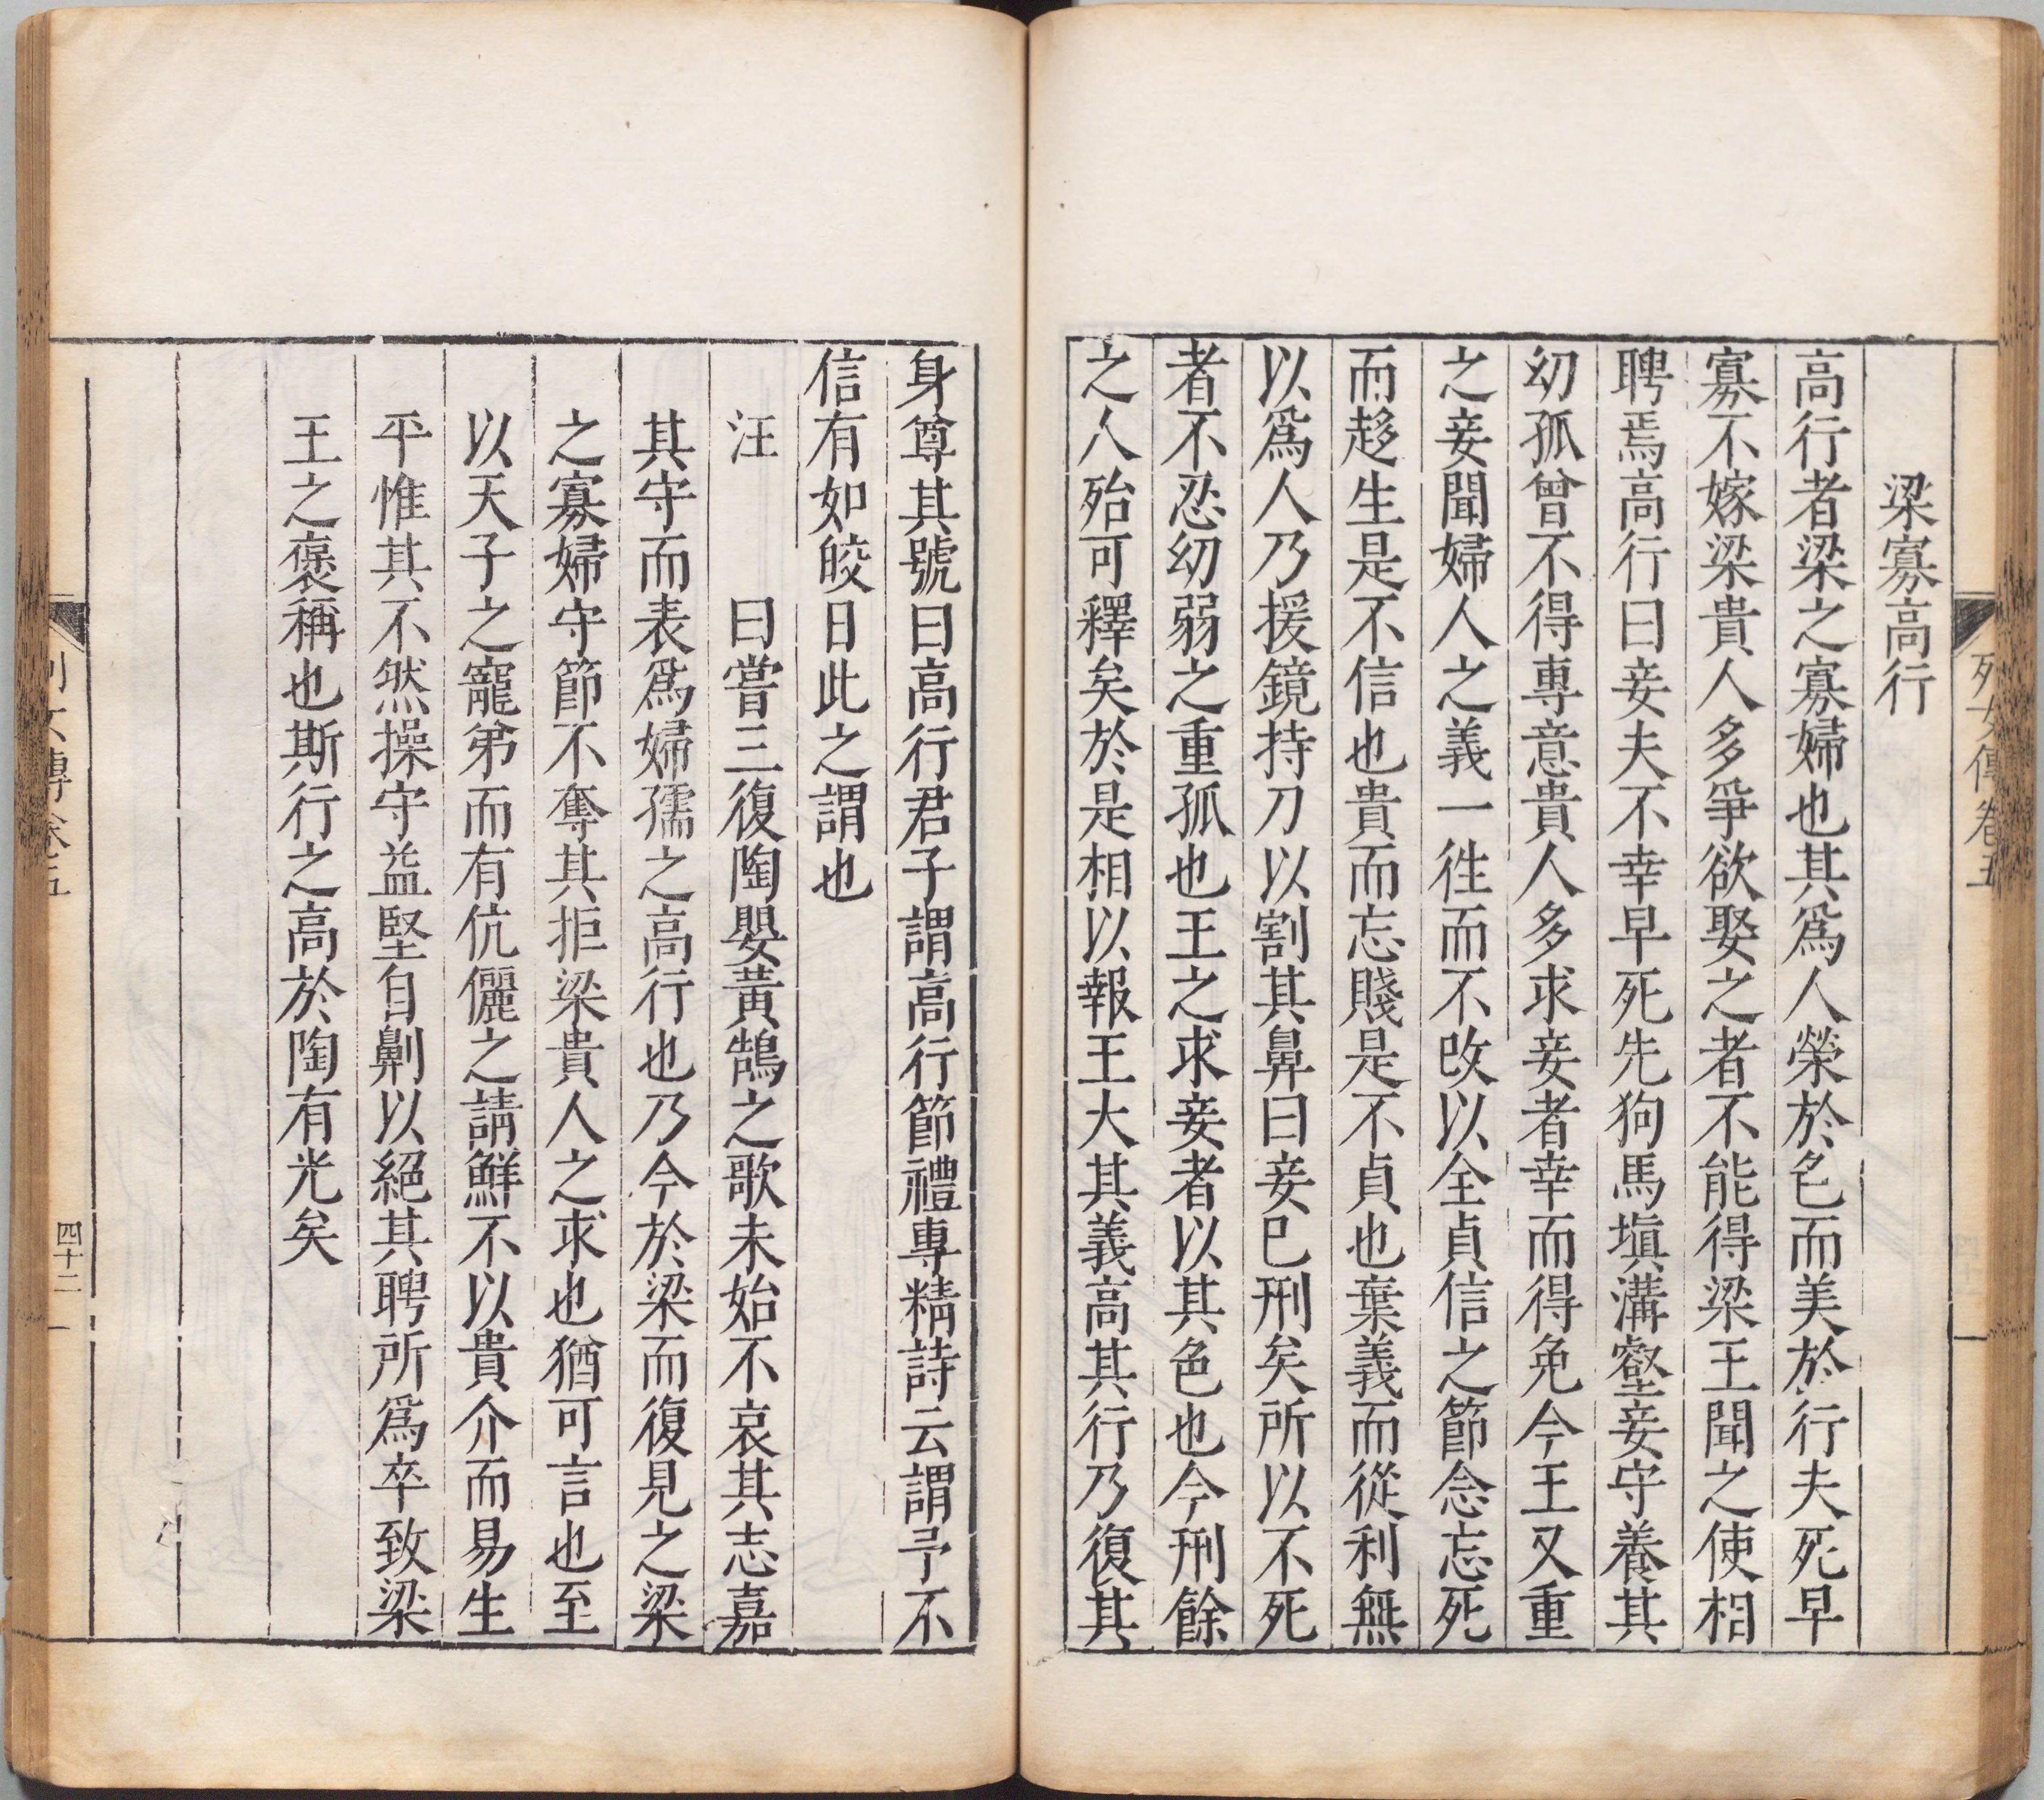 列女傳卷五
梁寡高行
高行者梁之寡婦也其爲人榮於色而美於行夫死早
寡不嫁梁貴人多爭欲娶之者不能得梁王聞之使相
聘焉高行曰妾夫不幸早死先狗馬塡溝壑妾守養其
幼孤曾不得專意貴人多求妾者幸而得免今王又重
之妾聞婦人之義一徃而不改以全貞信之節念忘死
而趍生是不信也貴而忘賤是不貞也棄義而從利無
以爲人乃援鏡持刀以割其鼻曰妾已刑矣所以不死
者不忍幼弱之重孤也王之求妾者以其色也今刑餘
之人殆可釋矣於是相以報王大其義高其行乃復其
身尊其號曰高行君子謂高行節禮專精詩云謂予不
信有如皎日此之謂也
汪　曰嘗三復陶嬰黃鵠之歌未始不哀其志嘉
其守而表爲婦孺之高行也乃今於梁而復見之梁
之寡婦守節不奪其拒梁貴人之求也猶可言也至
以天子之寵弟而有伉儷之請鮮不以貴介而易生
平惟其不然操守益堅自劓以絕其聘所爲卒致梁
王之褒稱也斯行之高於陶有光矣
列女傳卷五
四十二